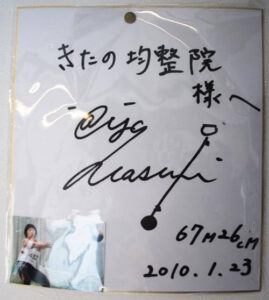 きたの均整院
様へ
67M26cM
2010.1.23